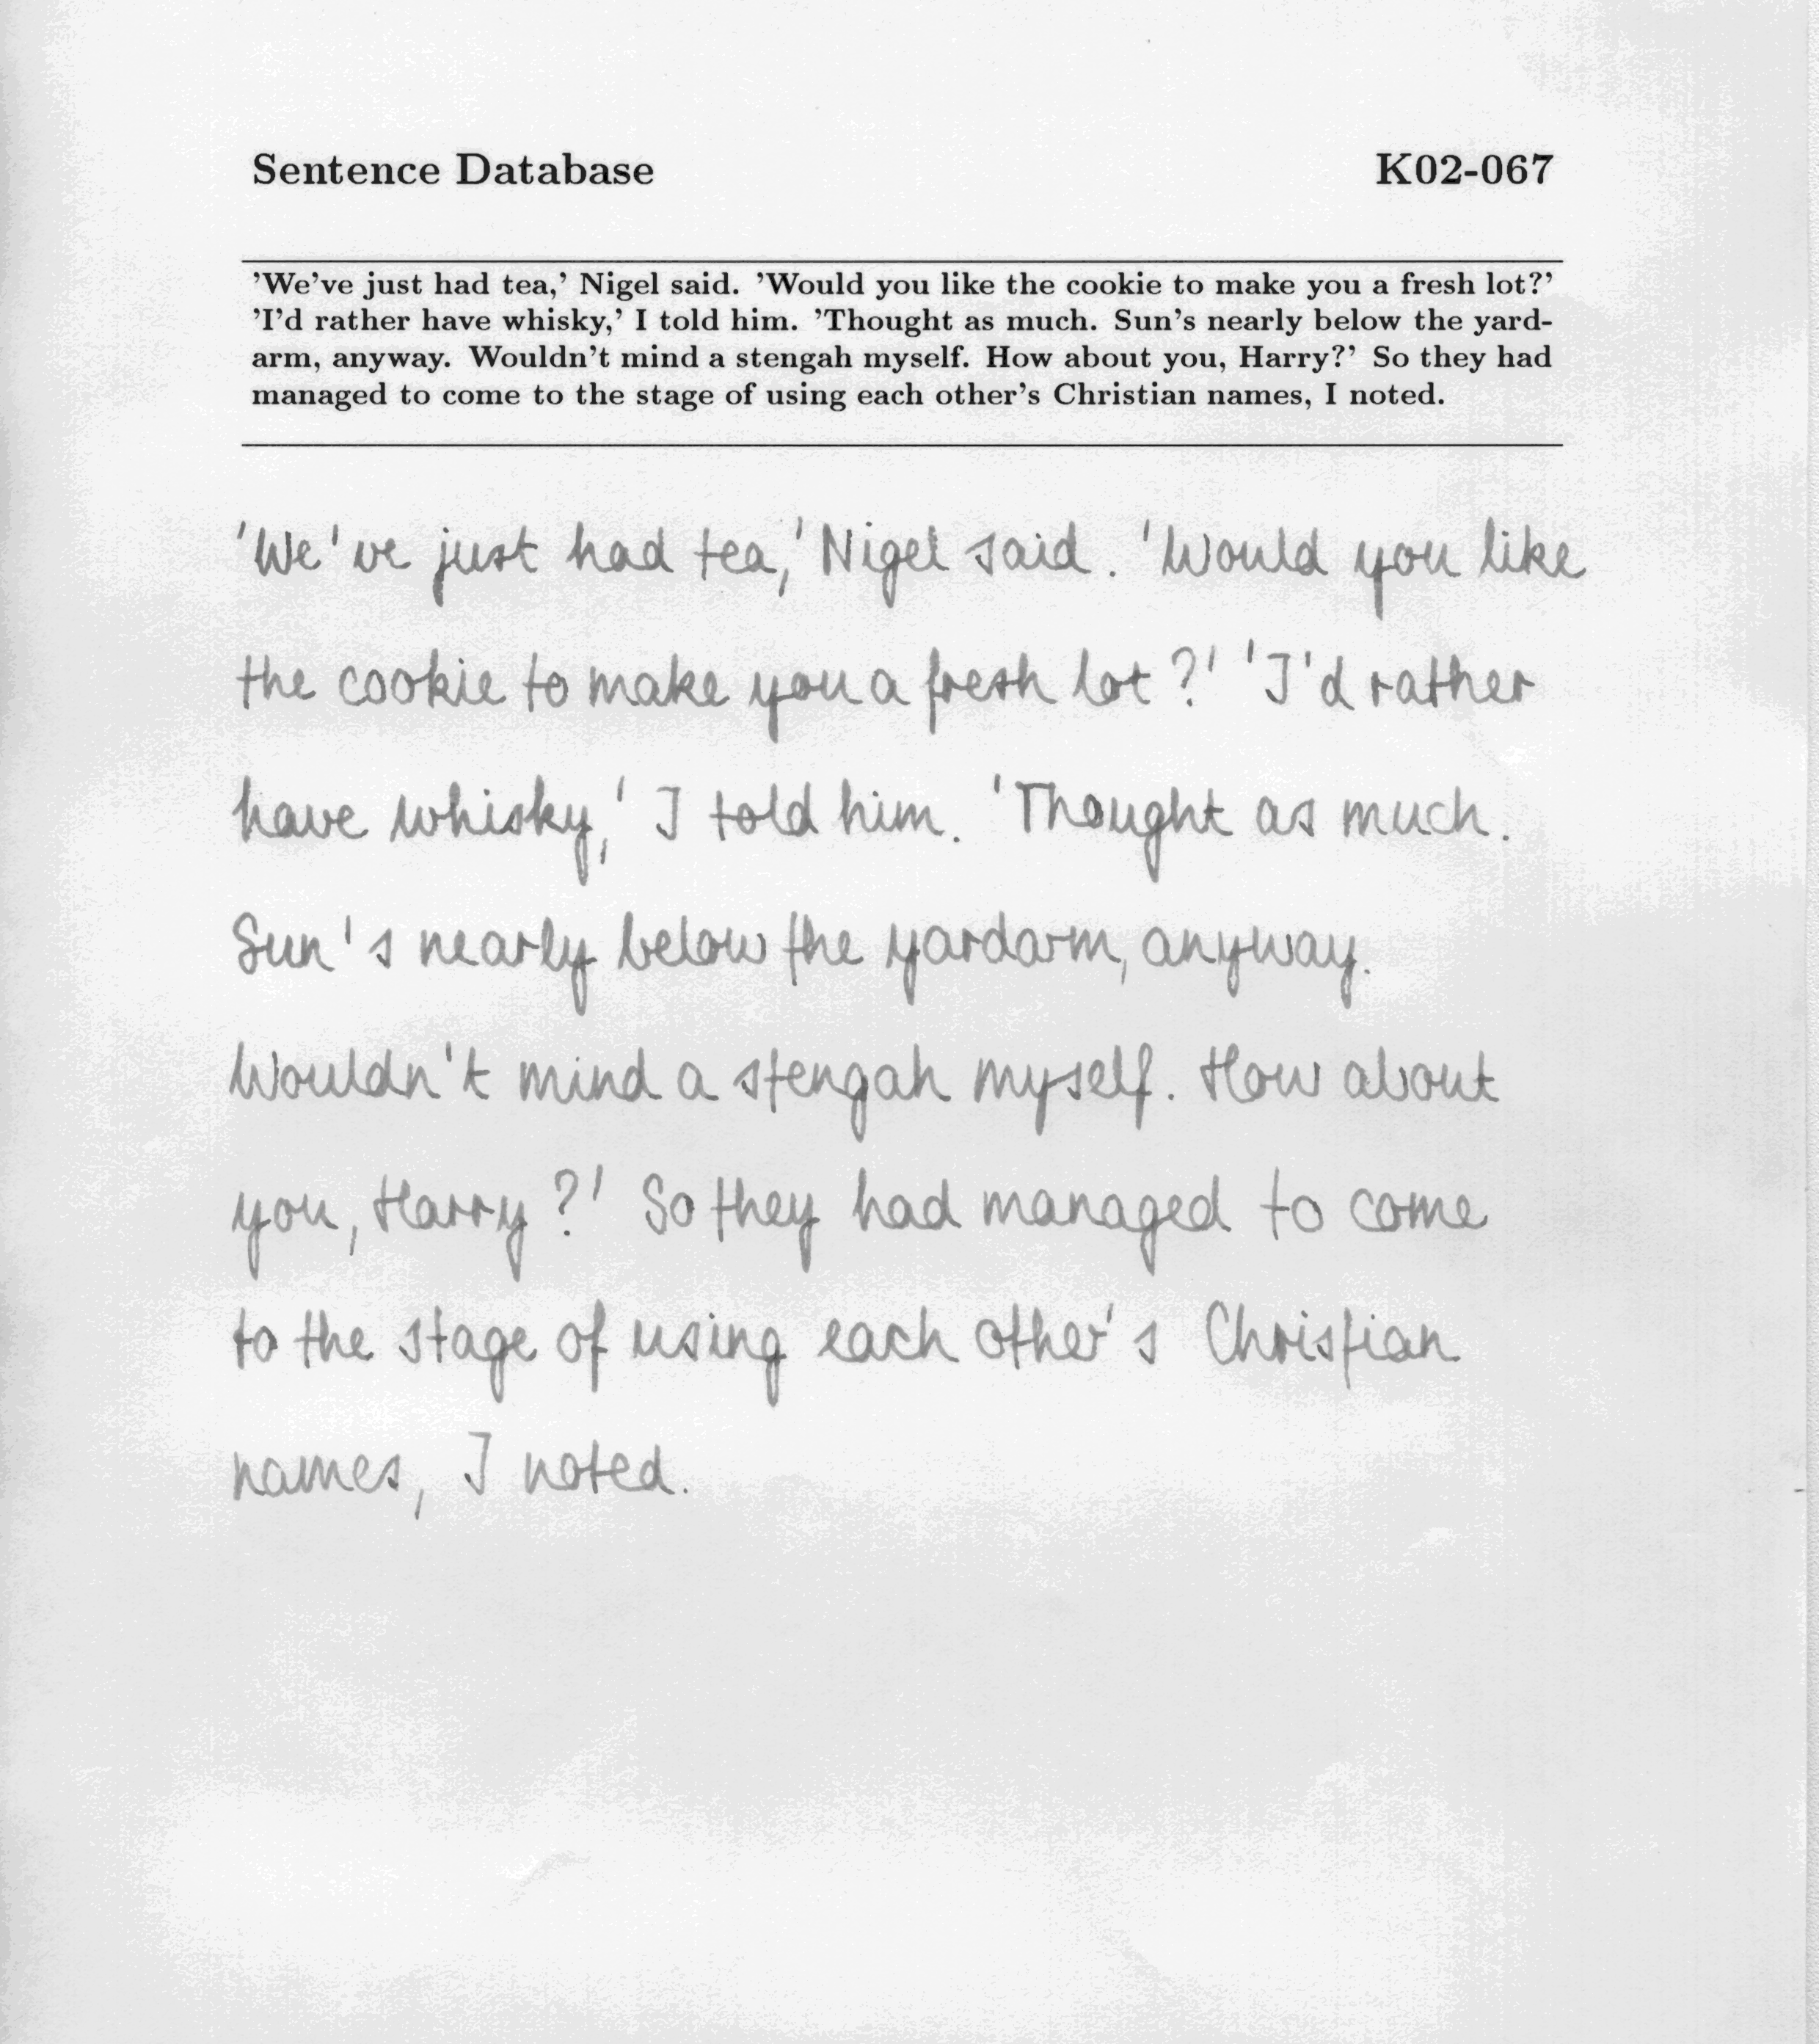 Sentence Database K02-067
’We’ve just had tea,’ Nigel said. ’Would you like the cookie to make you a fresh lot?’
’I’d rather have whisky,’ I told him. ’Thought as much. Sun’s nearly below the yard-
arm, anyway. Wouldn’t mind a stengah myself. How about you, Harry?’ So they had
managed to come to the stage of using each other’s Christian names, I noted.
'We've just had tea,' Nigel said. 'Would you like
the cookie to make you a fresh lot?' 'I'd rather
have whisky,' I told him. 'Thought as much.
Sun's nearly below the yardarm, anyway.
Wouldn't mind a stengah myself. How about
you, Harry?' So they had managed to come
to the stage of using each other's Christian
names, I noted.